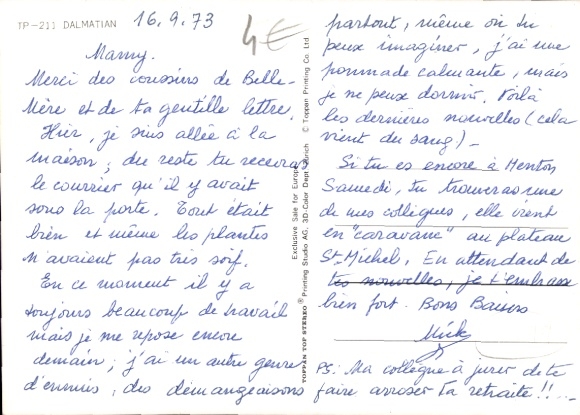 TP-211 DALMATIAN
16.9.73
4€
Mamy.
Merci des coussins de Belle-
Mère et de ta gentille lettre.
Hier, je suis allée à la
maison ; du reste tu recevras
le courrier qu'il y avait
sous la porte. Tout était
bien et même les plantes
n'avaient pas très soif.
En ce moment il y a
toujours beaucoup de travail
mais je me repose encore
demain ; j'ai un autre genre
d'ennuis, des démangeaisons
Exclusive Sale for Europe:
Printing Studio AG, 3D-Color Dept Zurich © Toppan Printing Co Ltd
TOPPAN TOP STEREO ®
partout, même où tu
peux imaginer, j'ai une
pommade calmante, mais
je ne peux dormir. Voilà
les dernières nouvelles (cela
vient du sang) -
Si tu es encore à Menton
Samedi, tu trouveras une
de mes collègues, elle vient
en "caravane" au plateau
St. Michel. En attendant de
tes nouvelles, je t'embrasse
bien fort. Bons Baisers
Micky
PS: Ma collègue a jurer de te
faire arroser ta retraite !!...